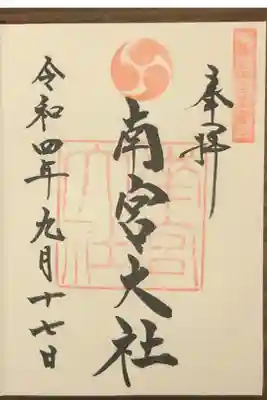 奉拝
南宮大社
令和四年九月十七日